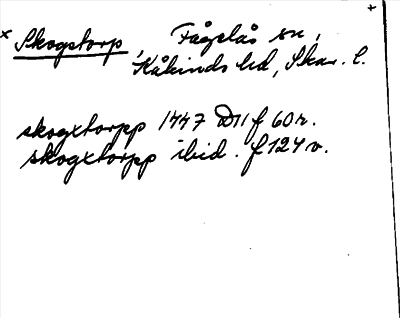 × Skogstorp, Fågelås sn,
Kåkinds hd, Skar. l.
skogxtorpp 1447 D11 f 60 r.
skogxtorpp ibid. f 124 v.